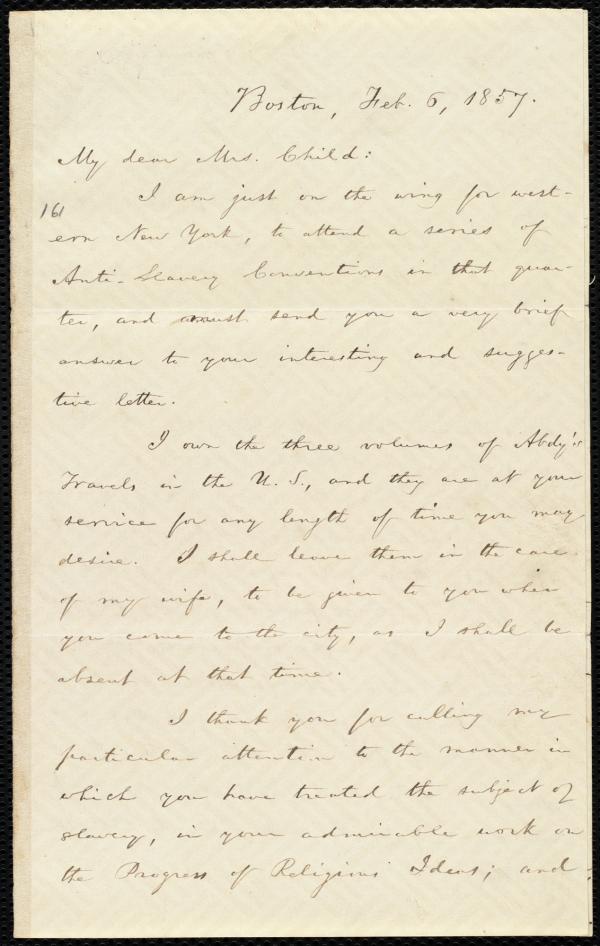 Boston, Feb. 6, 1857.
My dear Mrs. Child:
I am just on the wing for west-
161
ern New York, to attend a series of
Anti-Slavery Conventions in that quar-
ter, and must send you a very brief
answer to your interesting and sugges-
tive letter.
I own the three volumes of Abdy's
Travels in the U. S., and they are at your
service for any length of time you may
desire. I shall leave them in the care
of my wife, to be given to you when
you come to the city, as I shall be
absent at that time.
I thank you for calling my
particular attention to the manner in
which you have treated the subject of
slavery, in your admirable work on
the Progress of Religious Ideas; and